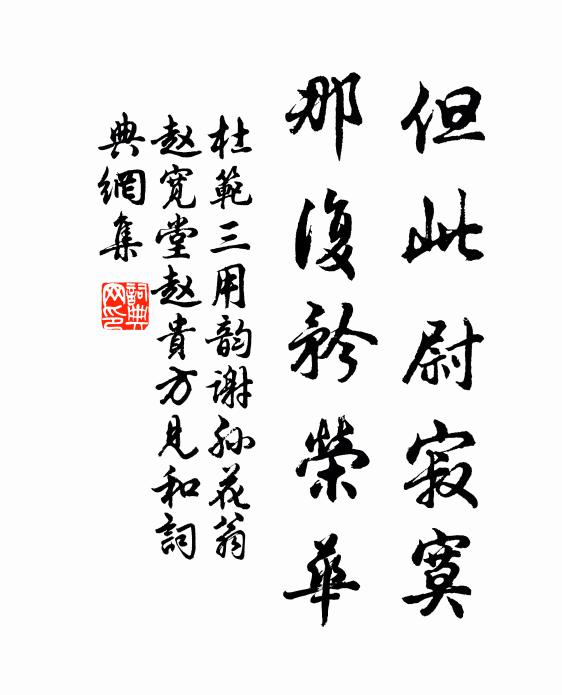 但此尉寂寞
那復矜榮華
杜範三用韵謝孙花翁
赵寛堂赵貴方見和詞
典網集
詞典
网印